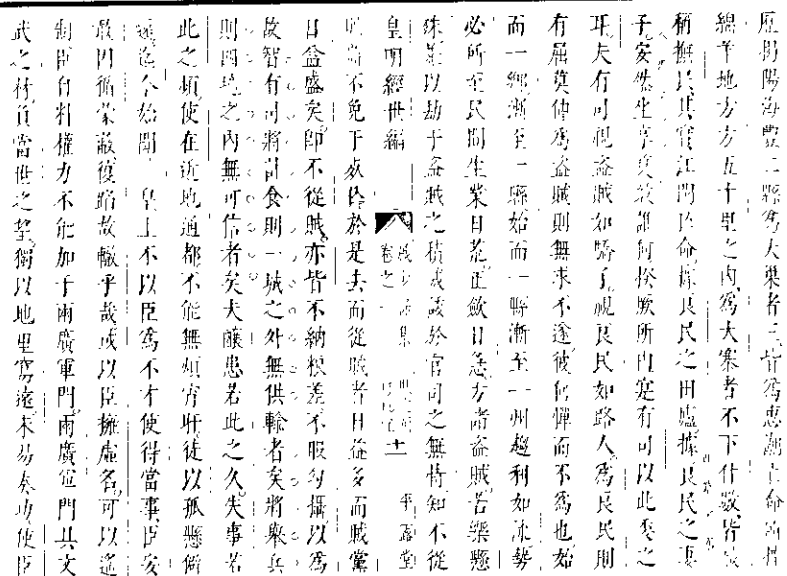 揭陽海豐二縣爲大巢者三皆爲惠潮土命
綿羊地方方五十里之內爲大寨者不下什數皆
稱撫民其實江門亡命據良民之田廬據良民之妻
子安然生享莫敢誰何揆厥所由寔有司以此委之
耳夫有司視盜賊如驕子視良民如路人爲良民則
有屈莫伸爲盜賊則無求不遂彼何憚而不爲也始
而一鄉漸至一縣始而一縣漸至一州趨利如流勢
必所至民間生業日荒正歛日急方諸盜賊苦樂懸
殊是以劫于盜賊之積威談於官司之無恃知不從
皇明經世編 卷之 十一 平露堂
賊尚不免于死於是去而從賊者日益多而賊黨
日益盛矣卽不從賊亦皆不納粮差不服勾攝以爲
故智有司將討食則一城之外無供輸者矣將舉兵
則四境之內無可信者矣夫釀患若此之久失事若
此之頻使在近地通都不能無煩宵旰徒以孤懸僻
遠迄今始聞 皇上不以臣爲不才使得當事臣安
敢因循蒙蔽復蹈故轍乎哉或以臣擁虛名可以遙
制臣自料權力不能加于兩廣軍門兩廣軍門具文
武之材負當世之望獨以地里寫遠未易奏功使臣